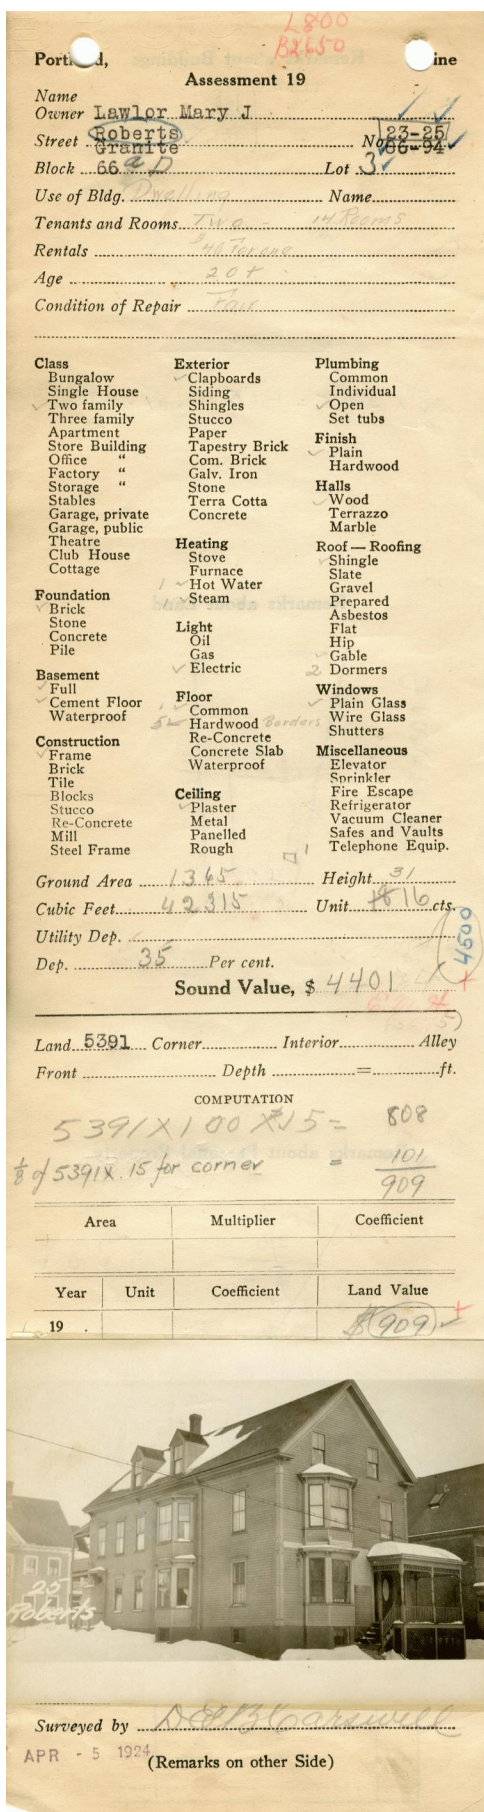 L800
B2650
Portland, Maine
Assessment 19
Name
Owner Lawlor Mary J
Street Roberts No. 23-25
Granite 86-94
Block 66 a D Lot 3
Use of Bldg. Dwelling Name
Tenants and Rooms Two - 14 Rooms
Rentals $40 for one
Age 20+
Condition of Repair Fair
Class
Bungalow
Single House
✓ Two family
Three family
Apartment
Store Building
Office "
Factory "
Storage "
Stables
Garage, private
Garage, public
Theatre
Club House
Cottage
Foundation
✓ Brick
Stone
Concrete
Pile
Basement
✓ Full
✓ Cement Floor
Waterproof
Construction
✓ Frame
Brick
Tile
Blocks
Stucco
Re-Concrete
Mill
Steel Frame
Exterior
✓ Clapboards
Siding
Shingles
Stucco
Paper
Tapestry Brick
Com. Brick
Galv. Iron
Stone
Terra Cotta
Concrete
Heating
Stove
Furnace
1 ✓ Hot Water
1 ✓ Steam
Light
Oil
Gas
✓ Electric
Floor
✓ Common
5 ✓ Hardwood Borders
Re-Concrete
Concrete Slab
Waterproof
Ceiling
✓ Plaster
Metal
Panelled
Rough
Plumbing
Common
Individual
✓ Open
Set tubs
Finish
✓ Plain
Hardwood
Halls
✓ Wood
Terrazzo
Marble
Roof — Roofing
✓ Shingle
Slate
Gravel
Prepared
Asbestos
Flat
Hip
✓ Gable
2 Dormers
Windows
✓ Plain Glass
Wire Glass
Shutters
Miscellaneous
Elevator
Sprinkler
Fire Escape
Refrigerator
Vacuum Cleaner
Safes and Vaults
Telephone Equip.
Ground Area 1365 Height 31
Cubic Feet 42315 Unit 16 cts.
Utility Dep.
Dep. 35 Per cent.
4500
Sound Value, $ 4401
Land 5391 Corner Interior Alley
Front Depth = ft.
COMPUTATION
5391 X 100 X 15 = 808
1/8 of 5391 X .15 for corner = 101
909
Area Multiplier Coefficient
Year Unit Coefficient Land Value
19 . $ 909 ✓
25
Roberts
Surveyed by D E B Carswell
APR - 5 1924
(Remarks on other Side)